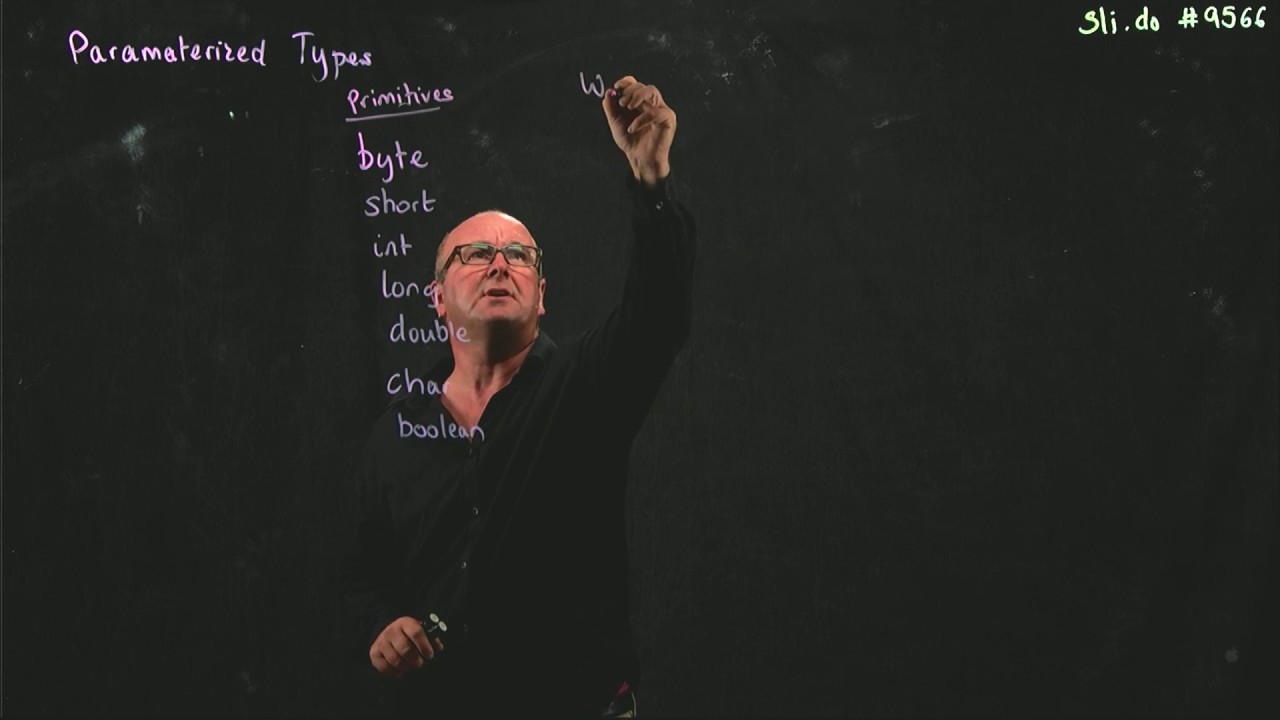 Sli.do #9566
Paramaterized Types
Primitives
byte
short
int
long
double
cha
boolean
W